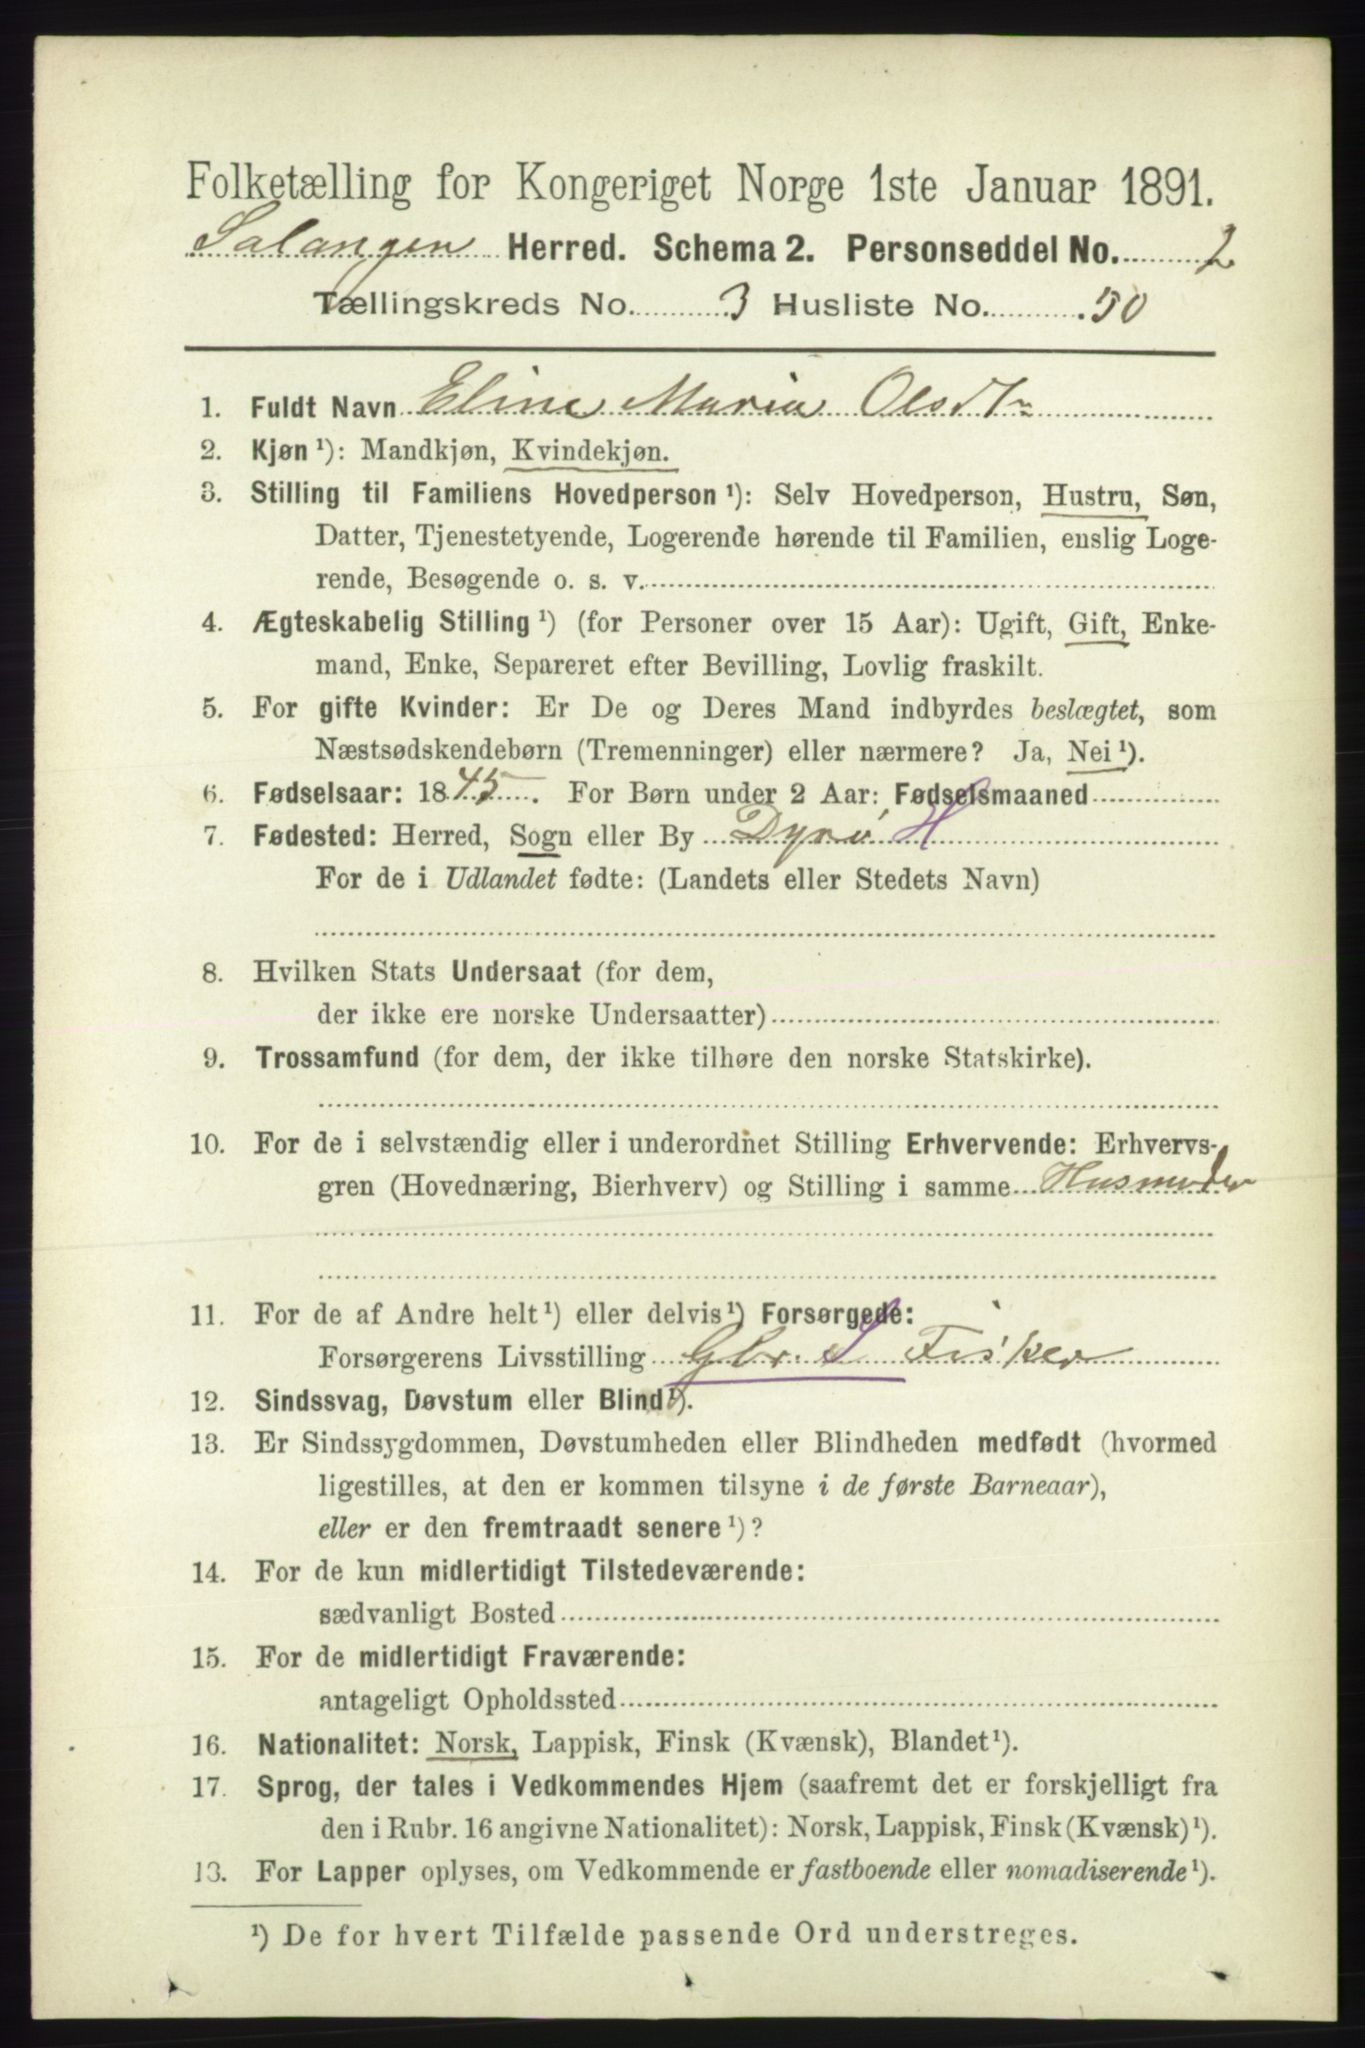 Folketælling for Kongeriget Norge 1ste Januar 1891.
Salangen Herred. Schema 2. Personseddel No. 2
Tællingskreds No. 3 Husliste No. 50
1. Fuldt Navn Eline Maria Olsdtr
2. Kjøn ¹): Mandkjøn, Kvindekjøn.
3. Stilling til Familiens Hovedperson ¹): Selv Hovedperson, Hustru, Søn,
Datter, Tjenestetyende, Logerende hørende til Familien, enslig Loge-
rende, Besøgende o. s. v.
4. Ægteskabelig Stilling ¹) (for Personer over 15 Aar): Ugift, Gift, Enke-
mand, Enke, Separeret efter Bevilling, Lovlig fraskilt.
5. For gifte Kvinder: Er De og Deres Mand indbyrdes beslægtet, som
Næstsødskendebørn (Tremenninger) eller nærmere? Ja, Nei ¹).
6. Fødselsaar: 1845. For Børn under 2 Aar: Fødselsmaaned
7. Fødested: Herred, Sogn eller By Dyrø H
For de i Udlandet fødte: (Landets eller Stedets Navn)
8. Hvilken Stats Undersaat (for dem,
der ikke ere norske Undersaatter)
9. Trossamfund (for dem, der ikke tilhøre den norske Statskirke).
10. For de i selvstændig eller i underordnet Stilling Erhvervende: Erhvervs-
gren (Hovednæring, Bierhverv) og Stilling i samme Husmoder
11. For de af Andre helt ¹) eller delvis ¹) Forsørgede:
Forsørgerens Livsstilling Gbr. S Fisker
12. Sindssvag, Døvstum eller Blind ¹).
13. Er Sindssygdommen, Døvstumheden eller Blindheden medfødt (hvormed
ligestilles, at den er kommen tilsyne i de første Barneaar),
eller er den fremtraadt senere ¹)?
14. For de kun midlertidigt Tilstedeværende:
sædvanligt Bosted
15. For de midlertidigt Fraværende:
antageligt Opholdssted
16. Nationalitet: Norsk, Lappisk, Finsk (Kvænsk), Blandet ¹).
17. Sprog, der tales i Vedkommendes Hjem (saafremt det er forskjelligt fra
den i Rubr. 16 angivne Nationalitet): Norsk, Lappisk, Finsk (Kvænsk) ¹).
13. For Lapper oplyses, om Vedkommende er fastboende eller nomadiserende ¹).
¹) De for hvert Tilfælde passende Ord understreges.